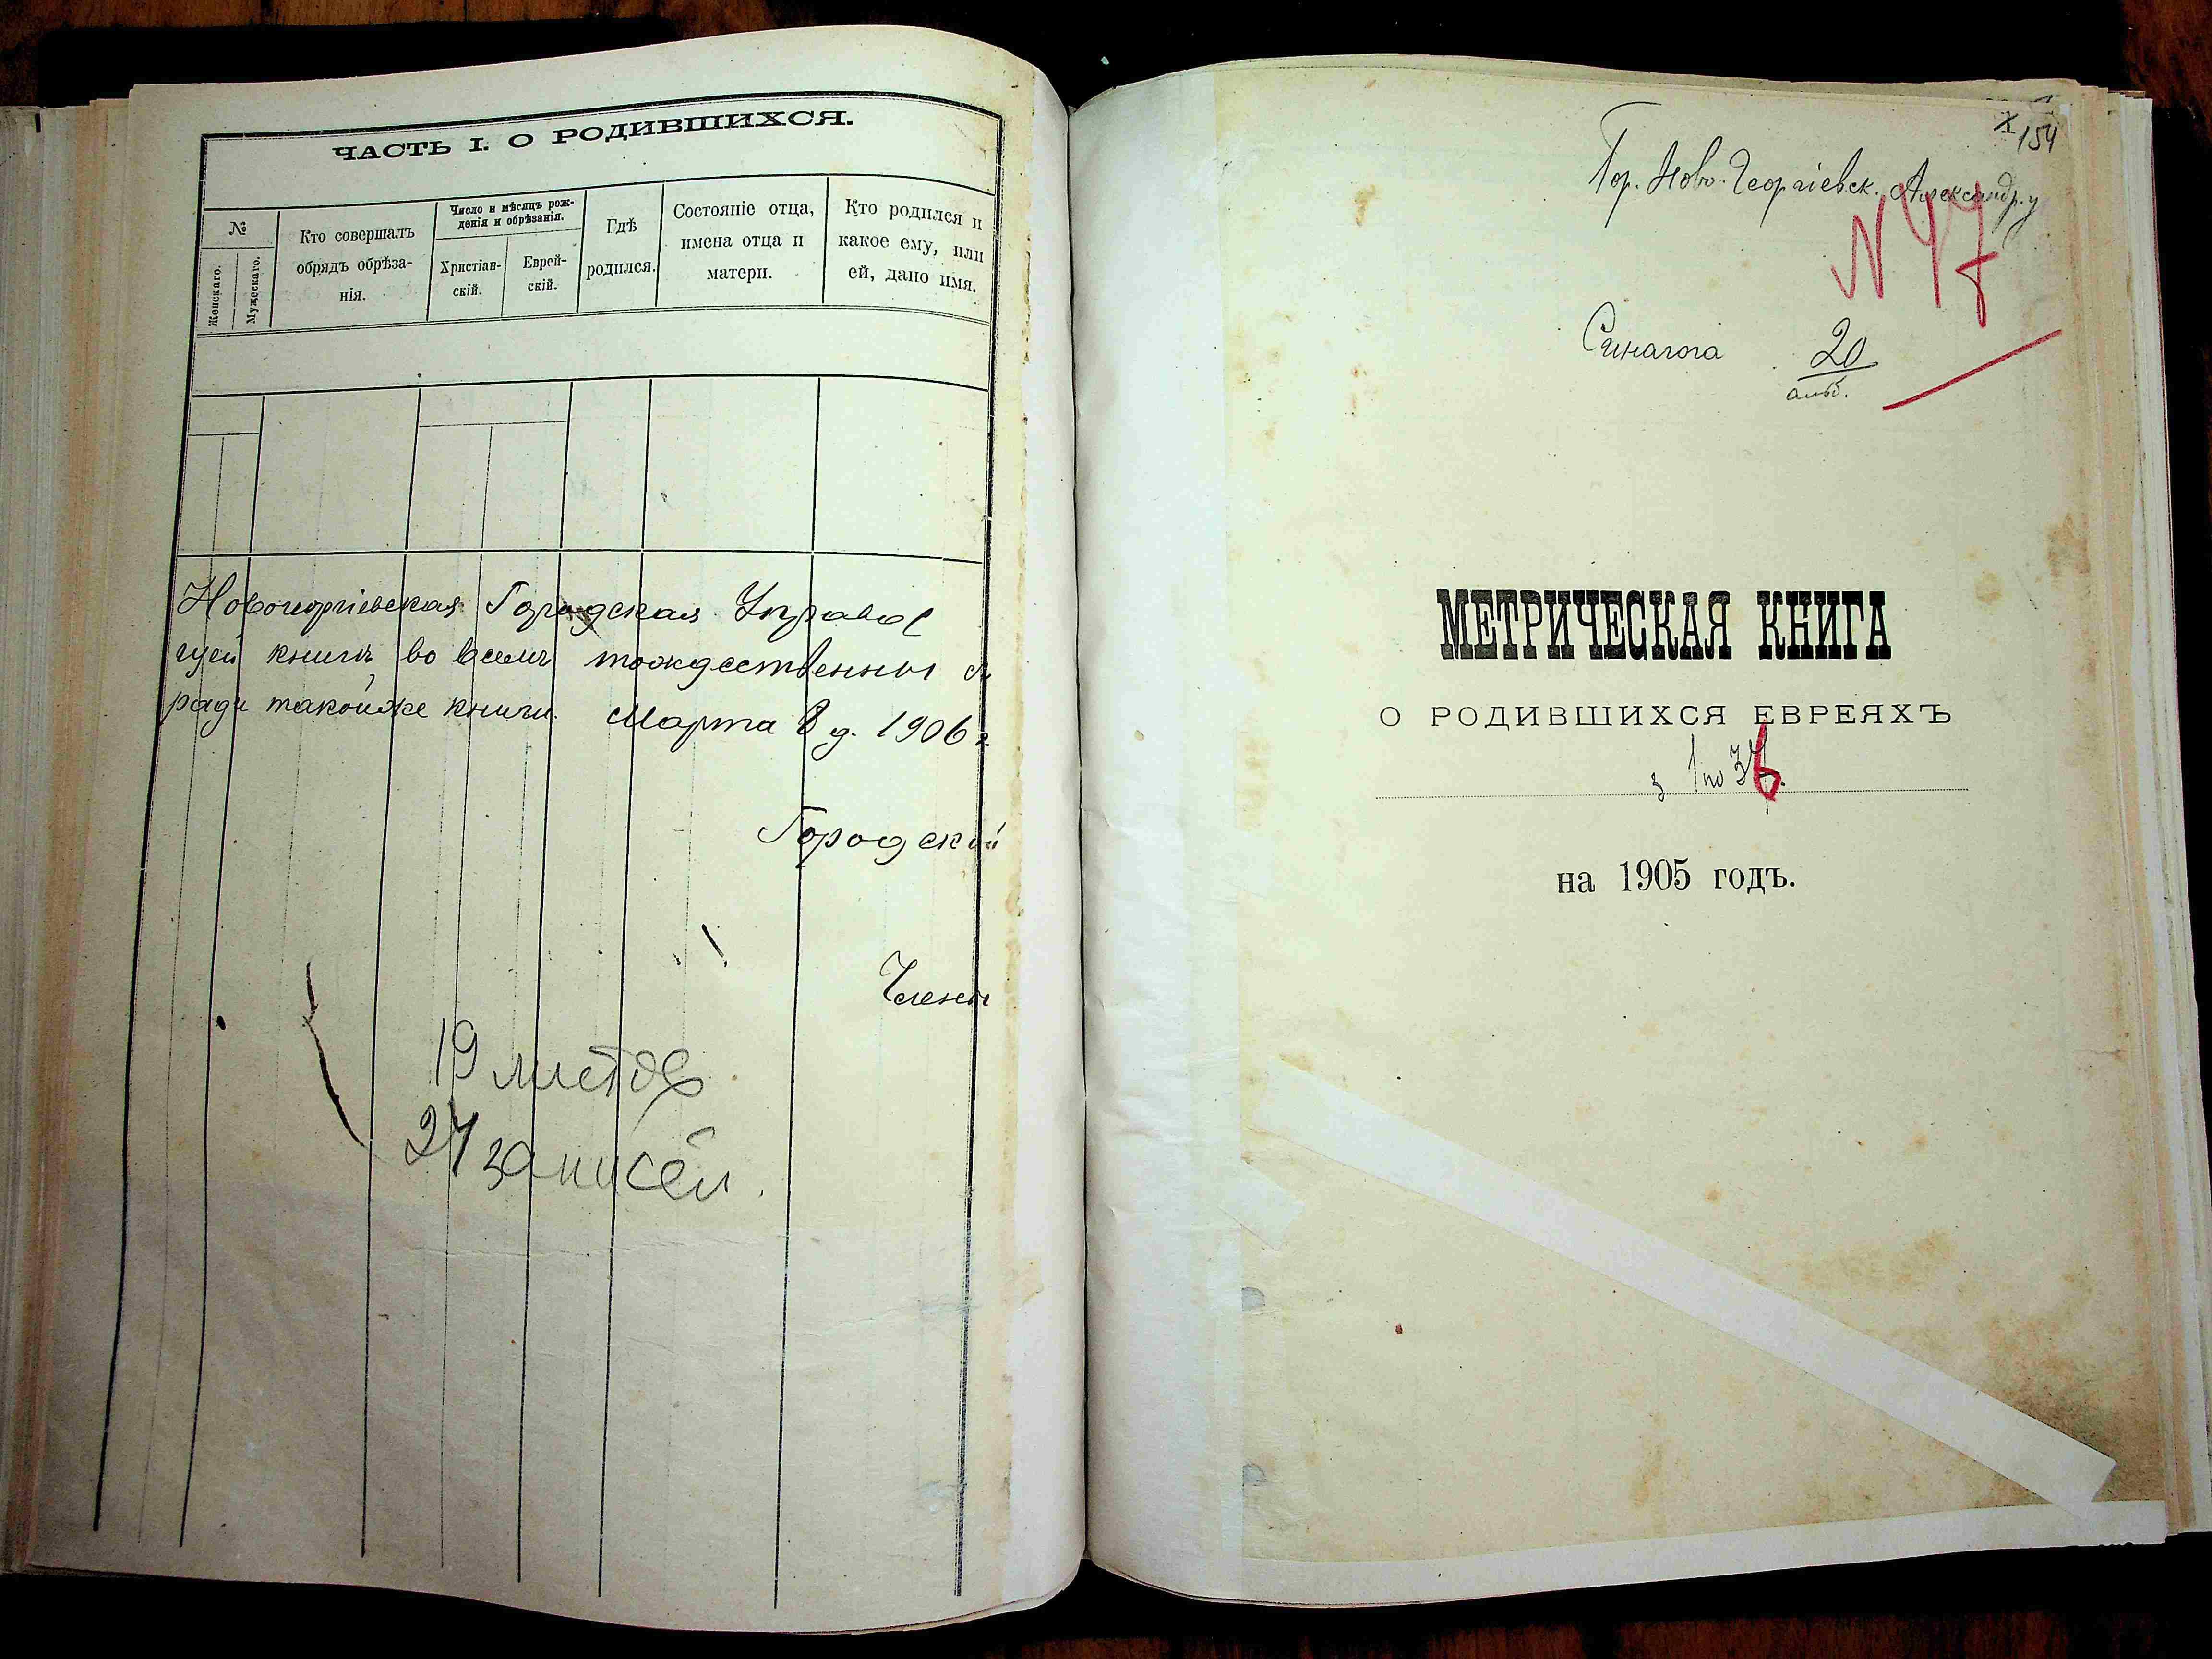 ЧАСТЬ I. О РОДИВШИХСЯ.
№
Женскаго.
Мужескаго.
Кто совершалъ
обрядъ обрѣза-
нія.
Число и мѣсяцъ рож-
денія и обрѣзанія.
Христіан-
скій.
Еврей-
скій.
Гдѣ
родился.
Состояніе отца,
имена отца и
матери.
Кто родился и
какое ему, или
ей, дано имя.
Новогеоргіевская Городская Управа
щей книги во всемъ тождественны
ради такой же книги. Марта 8 д. 1906 г.
Городской
Члены
19 листов
24 записей.
154
Гор. Ново-Георгіевск. Александр. у
N 47
Синагога 20
альб.
МЕТРИЧЕСКАЯ КНИГА
О РОДИВШИХСЯ ЕВРЕЯХЪ
з 1 по 36.
на 1905 годъ.